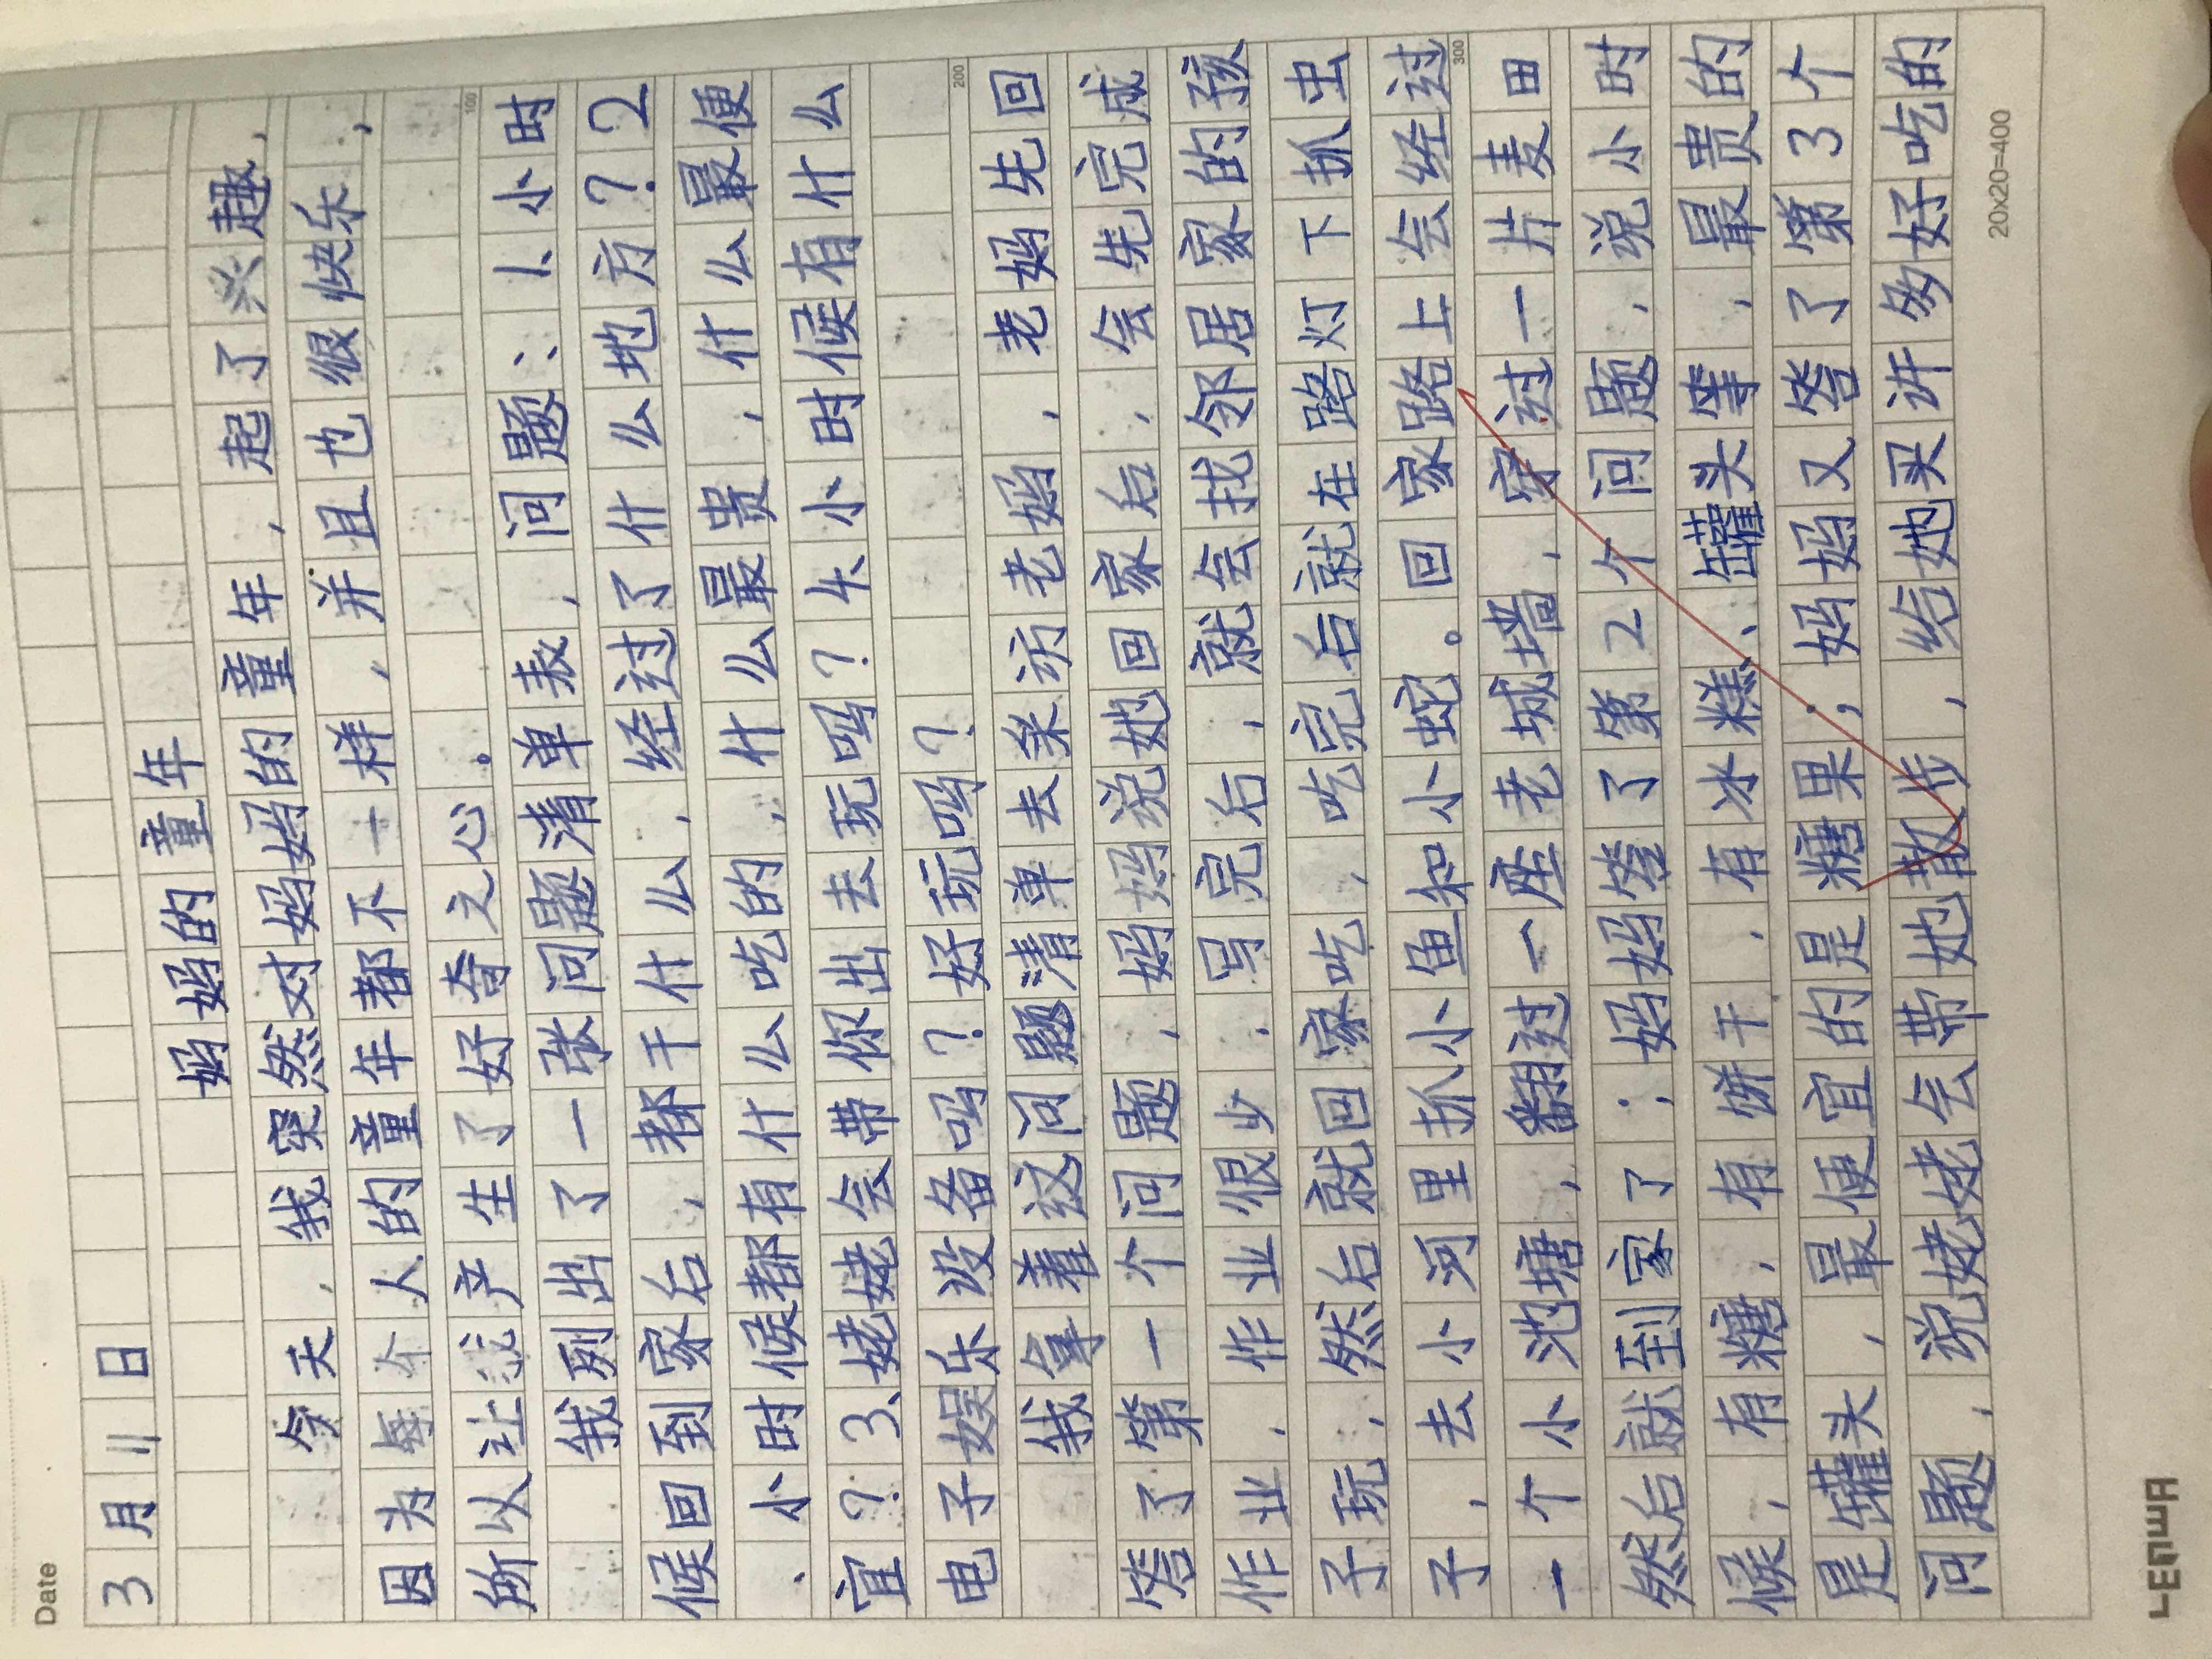 Date
3月11日
妈妈的童年
今天，我突然对妈妈的童年，起了兴趣，
因为每个人的童年都不一样，并且也很快乐，
所以让我产生了好奇之心。
100
我列出了一张问题清单表，问题、1、小时
候回到家后，都干什么，经过了什么地方？2
、小时候都有什么吃的，什么最贵，什么最便
宜？3、姥姥会带你出去玩吗？4、小时候有什么
电子娱乐设备吗？好玩吗？
200
我拿着这问题清单去采访老妈，老妈先回
答了第一个问题，妈妈说她回家后，会先完成
作业，作业很少，写完后，就会找邻居家的孩
子玩，然后就回家吃，吃完后就在路灯下抓虫
子，去小河里抓小鱼和小蛇。回家路上会经过
300
一个小池塘，翻过一座老城墙，穿过一片麦田
然后就到家了；妈妈答了第2个问题，说小时
候，有糖，有饼干，有冰糕、罐头等，最贵的
是罐头，最便宜的是糖果；妈妈又答了第3个
问题，说姥姥会带她散步，给她买许多好吃的
20x20=400